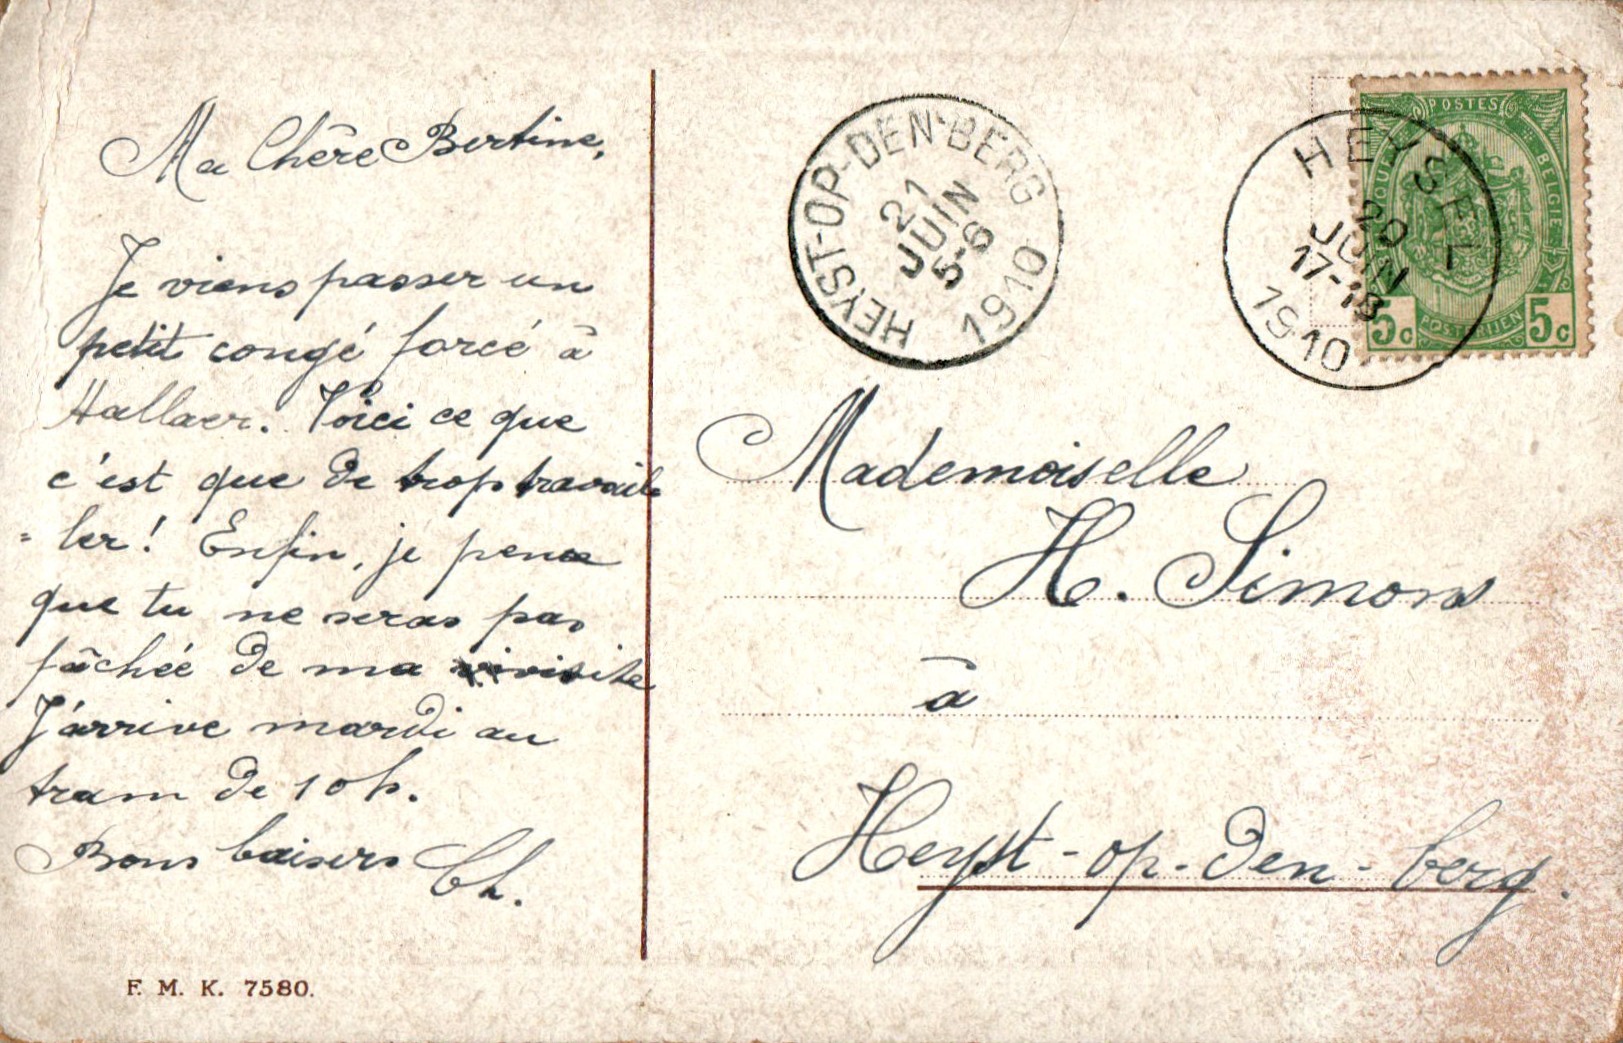 Ma Chère Bertine,
Je viens passer un
petit congé forcé à
Hallaer. Voici ce que
c'est que de trop travail
=ler! Enfin, je pense
que tu ne seras pas
fâchée de ma visite
J'arrive mardi au
tram de 10h.
Bons baisers Ch.
F. M. K. 7580.
HEYST-OP-DEN-BERG
21
JUIN
5-6
1910
HEYSEL
20
JUIN
17-18
1910
POSTES
BELGIQUE
BELGIE
POSTERIJEN
5c 5c
Mademoiselle
H. Simons
à
Heyst-op-den-berg.